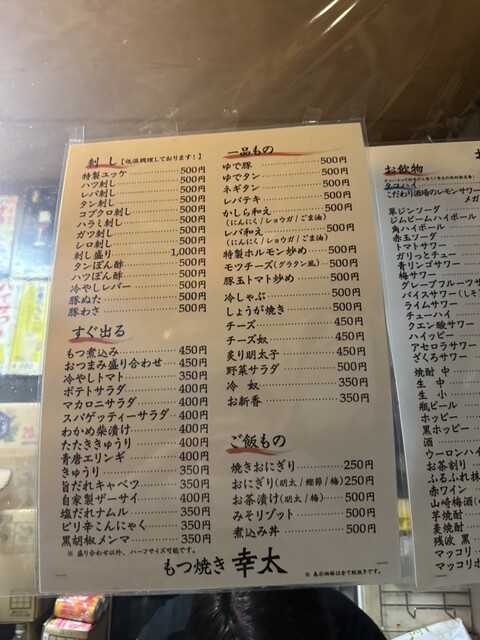 刺し【低温調理しております！】
特製ユッケ 500円
ハツ刺し 500円
レバ刺し 500円
タン刺し 500円
コブクロ刺し 500円
ハラミ刺し 500円
ガツ刺し 500円
シロ刺し 500円
刺し盛り 1,000円
タンぽん酢 500円
ハツぽん酢 500円
冷やしレバー 500円
豚ぬた 500円
豚わさ 500円
すぐ出る
もつ煮込み 450円
おつまみ盛り合わせ 450円
冷やしトマト 450円
ポテトサラダ 400円
マカロニサラダ 400円
スパゲッティーサラダ 400円
わかめ柴漬け 400円
たたききゅうり 400円
青唐エリンギ 400円
きゅうり 350円
旨だれキャベツ 350円
自家製ザーサイ 400円
塩だれナムル 350円
ピリ辛こんにゃく 350円
黒胡椒メンマ 350円
※ 盛り合わせ以外、ハーフサイズ可能です。
一品もの
ゆで豚 500円
ゆでタン 500円
ネギタン 500円
レバテキ 500円
かしら和え 500円
(にんにく/ショウガ/ごま油)
レバ和え 500円
(にんにく/ショウガ/ごま油)
特製ホルモン炒め 500円
モツチーズ(グラタン風) 500円
豚玉トマト炒め 500円
冷しゃぶ 500円
しょうが焼き 500円
チーズ 450円
チーズ奴 450円
炙り明太子 450円
野菜サラダ 500円
冷 奴 350円
お新香 350円
ご飯もの
焼きおにぎり 250円
おにぎり(明太/鰹節/梅) 250円
お茶漬け(明太/梅) 500円
みそリゾット 500円
煮込み丼 500円
もつ焼き 幸太
※ 表示価格は全て税抜きです。
お飲物
タコハイ
こだわり酒場のレモンサワー
メガ
翠ジンソーダ
ジムビームハイボール
角ハイボール
赤玉ソーダ
トマトサワー
ガリっとチュー
青リンゴサワー
梅サワー
グレープフルーツサ
バイスサワー(しそ
ライムサワー
チューハイ
クエン酸サワー
ハイッピー
アセロラサワー
ざくろサワー
焼酎 中
生 中
生 小
瓶ビール
ホッピー
黒ホッピー
酒
ウーロンハイ
お茶割り
ふるふれ抹
赤ワイン
山崎梅酒(
芋焼酎
麦焼酎
残波 黒
マッコリ
マッコリホ